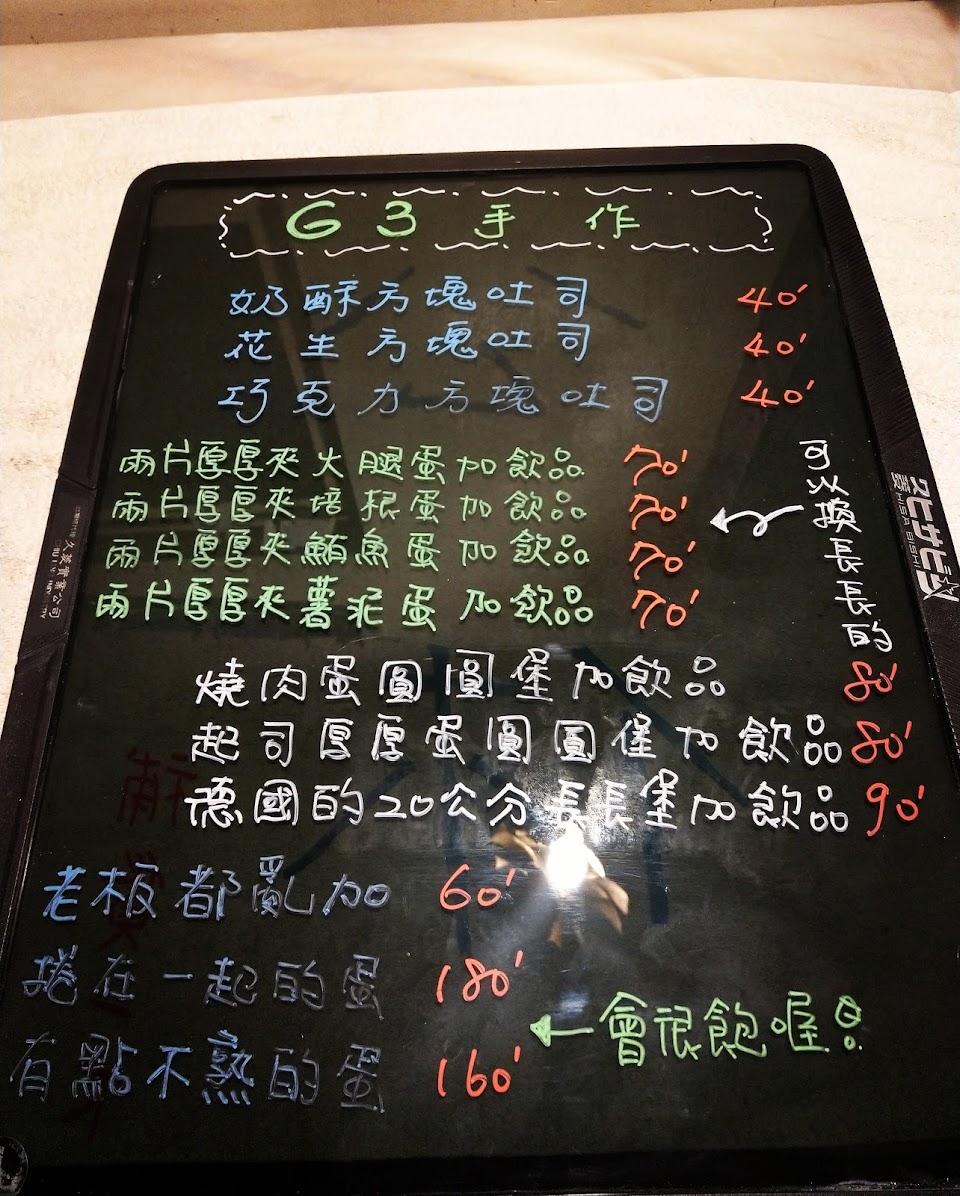 G3手作
奶酥方塊吐司 40'
花生方塊吐司 40'
巧克力方塊吐司 40'
兩片厚厚夾火腿蛋加飲品 70'
兩片厚厚夾培根蛋加飲品 70'
兩片厚厚夾鮪魚蛋加飲品 70'
兩片厚厚夾薯泥蛋加飲品 70'
可以換長長的
燒肉蛋圓圓堡加飲品 80'
起司厚厚蛋圓圓堡加飲品 80'
德國的20公分長長堡加飲品 90'
老板都亂加 60'
捲在一起的蛋 180'
有點不熟的蛋 160'
←會很飽喔!
HISABISHI